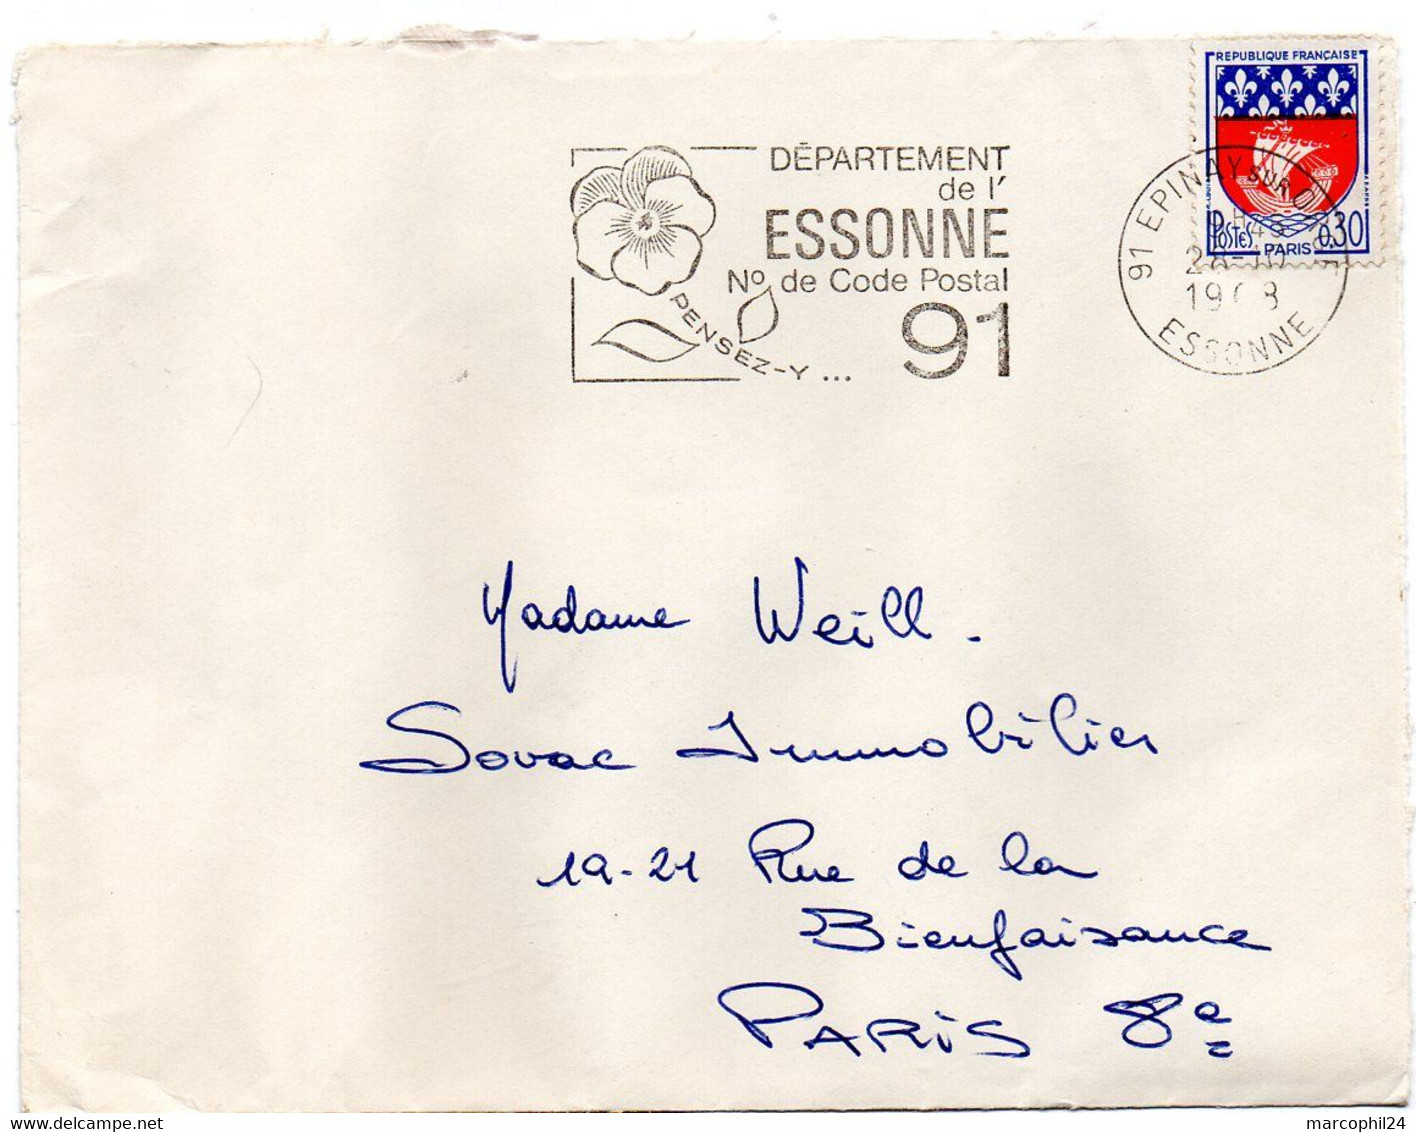 REPUBLIQUE FRANÇAISE
POSTES PARIS 0,30
91 EPINAY SUR
1968
ESSONNE
DÉPARTEMENT
de l'
ESSONNE
Nº de Code Postal
91
PENSEZ-Y...
Madame Weill.
Sovac Immobilier
19-21 Rue de la
Bienfaisance
PARIS 8e
marcophil24